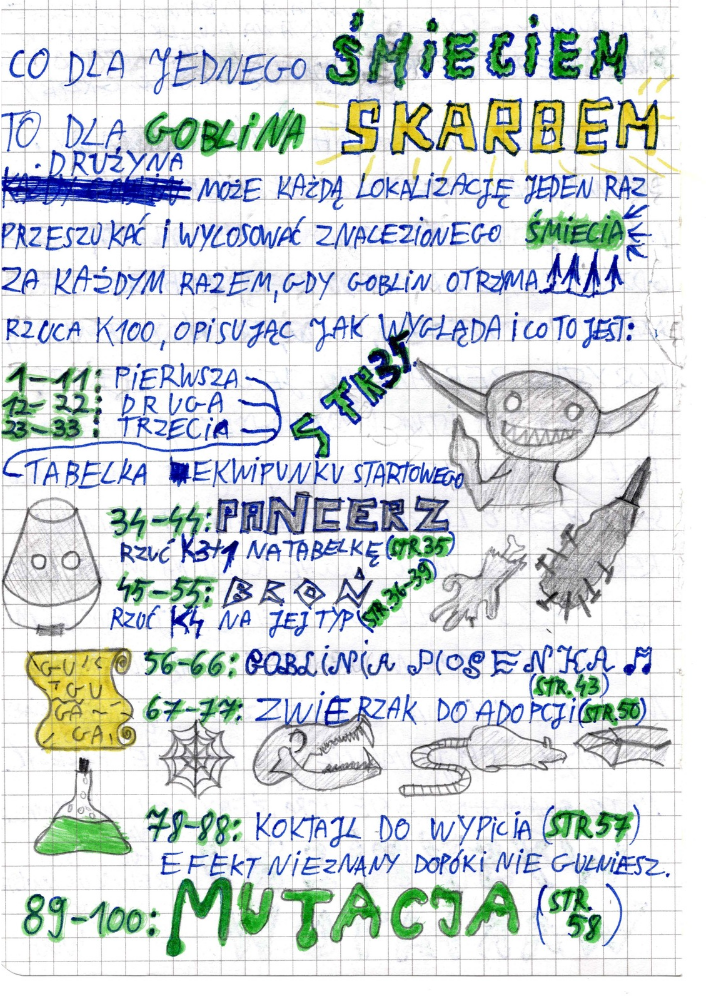 CO DLA JEDNEGO ŚMIECIEM
TO DLA GOBLINA SKARBEM
DRUŻYNA
MOŻE KAŻDĄ LOKALIZACJĘ JEDEN RAZ
PRZESZUKAĆ I WYLOSOWAĆ ZNALEZIONEGO ŚMIECIA
ZA KAŻDYM RAZEM, GDY GOBLIN OTRZYMA
RZUCA K100, OPISUJĄC JAK WYGLĄDA i CO TO JEST:
1-11: PIERWSZA
12-22: DRUGA
23-33: TRZECIA
STR 35
TABELKA EKWIPUNKU STARTOWEGO
34-44: PANCERZ
RZUĆ K3+1 NA TABELKĘ (STR 35)
45-55: BROŃ
RZUĆ K4 NA JEJ TYP (STR. 36-39)
56-66: GOBLIŃSKA PIOSENKA
(STR. 43)
67-77: ZWIERZAK DO ADOPCJI (STR. 50)
78-88: KOKTAJL DO WYPICIA (STR 57)
EFEKT NIEZNANY DOPÓKI NIE GULNIESZ.
89-100: MUTACJA (STR. 58)